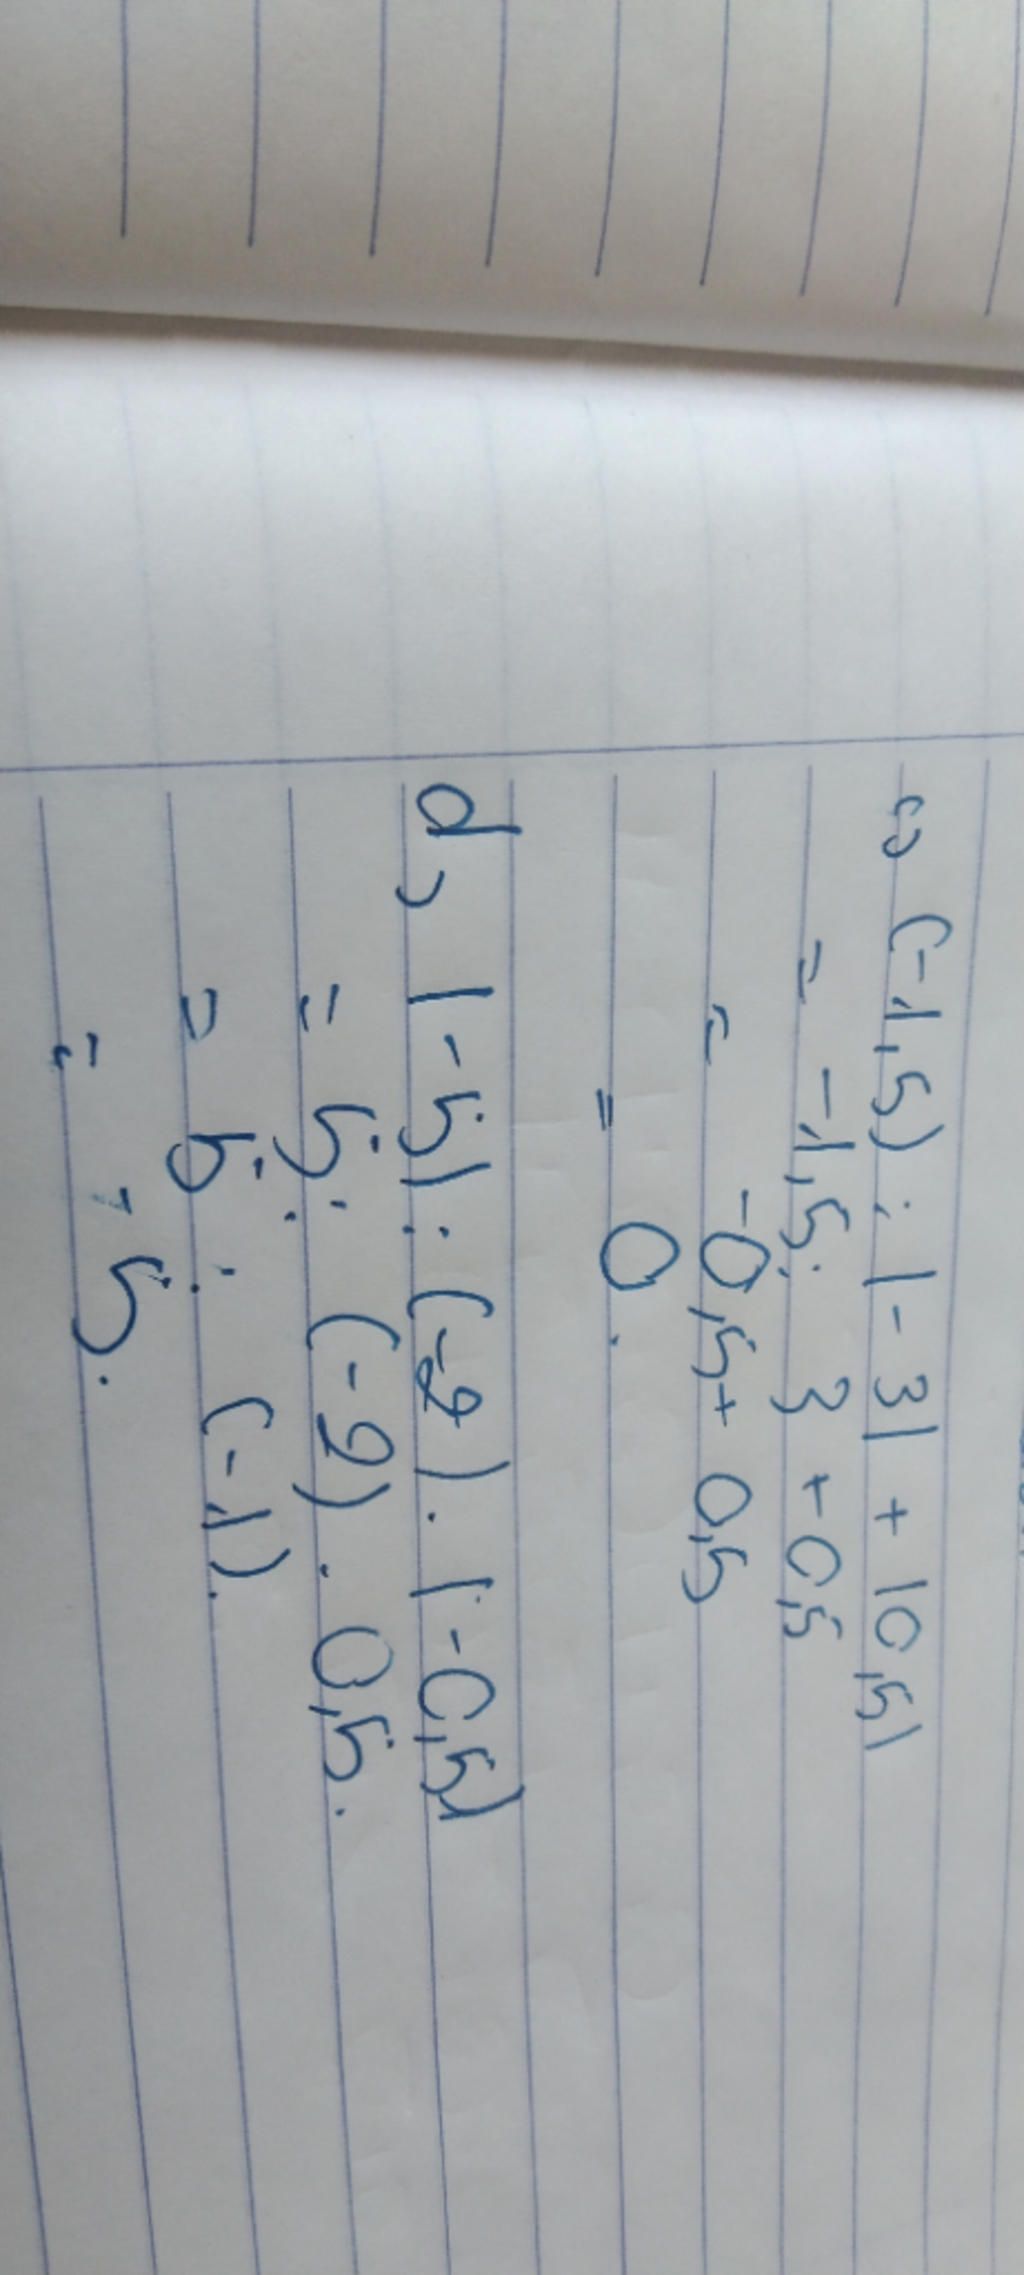 c) (-1,5) : |-3| + |0,5|
= -1,5 : 3 + 0,5
= -0,5 + 0,5
= 0.
d) |-5| : (-2) . |-0,5|
= 5 : (-2) . 0,5.
= 5 : (-1).
= -5.